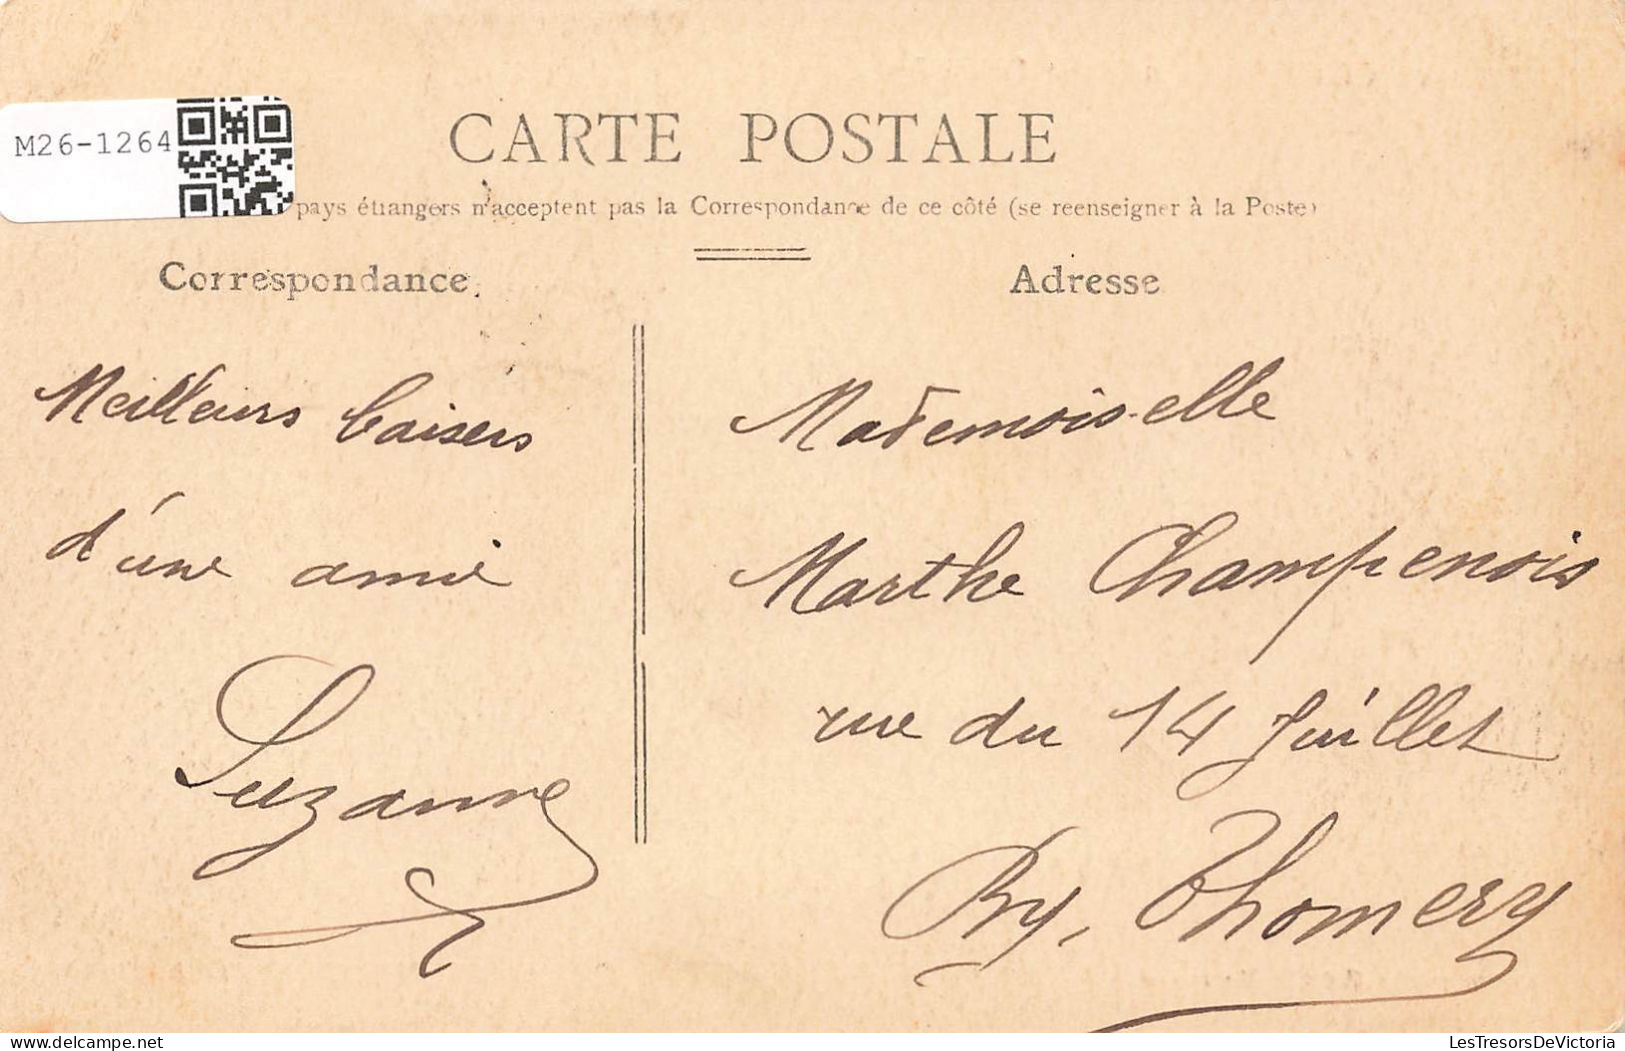 M26-1264
CARTE POSTALE
pays étrangers n'acceptent pas la Correspondance de ce côté (se reenseigner à la Poste)
Correspondance
Adresse
Meilleurs baisers
d'une amie
Suzanne
Mademoiselle
Marthe Champenois
rue du 14 Juillet
By, Thomery
delcampe.net
LesTresorsDeVictoria